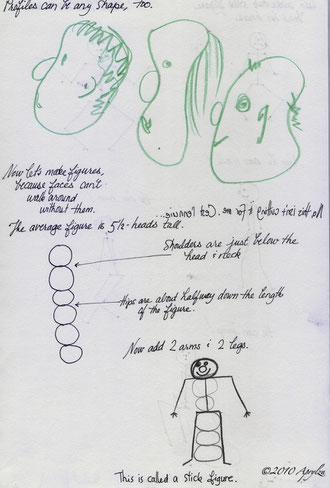 Profiles can be any shape, too.
Now let's make figures,
because faces can't
walk around
without them.
The average figure is 5½-heads tall.
Shoulders are just below the
head & neck
Hips are about halfway down the length
of the figure.
Now add 2 arms & 2 legs.
This is called a stick figure.
©2010